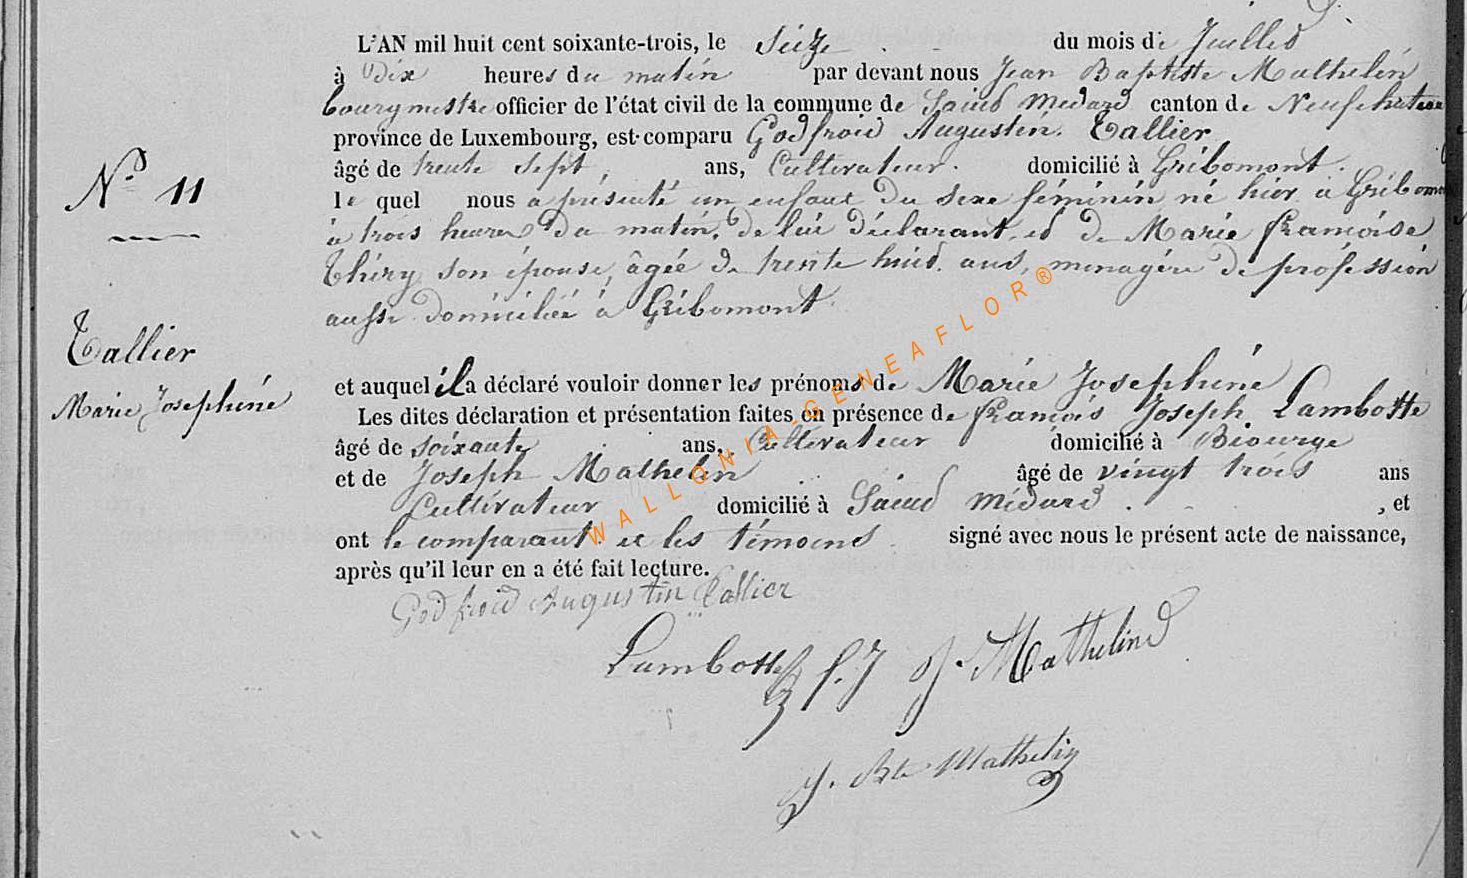 L'AN mil huit cent soixante-trois, le Seize du mois de Juillet
à Dix heures du matin par devant nous Jean Baptiste Mathelin
bourgmestre officier de l'état civil de la commune de Saint Medard canton de Neufchateau
province de Luxembourg, est comparu Godfroid Augustin Tallier,
âgé de trente sept, ans, Cultivateur domicilié à Gribomont
N.o 11
le quel nous a présenté un enfant du sexe féminin né hier à Gribomont
à trois heures du matin, de lui déclarant, et de Marie françoise
Thiry son épouse, âgée de trente huit ans, menagère de profession
aussi domiciliée à Gribomont
Tallier
Marie Josephine
et auquel il a déclaré vouloir donner les prénoms de Marie Josephine
Les dites déclaration et présentation faites en présence de françois Joseph Lambotte
âgé de soixante ans, Cultivateur domicilié à Biourge
et de Joseph Mathelin âgé de vingt trois ans
Cultivateur domicilié à Saint Médard , et
ont le comparant et les témoins signé avec nous le présent acte de naissance,
après qu'il leur en a été fait lecture.
Godfroid Augustin Tallier
Lambotte f. J J. Mathelin
J. Bte Mathelin
WALLONIA-GENEAFLOR®